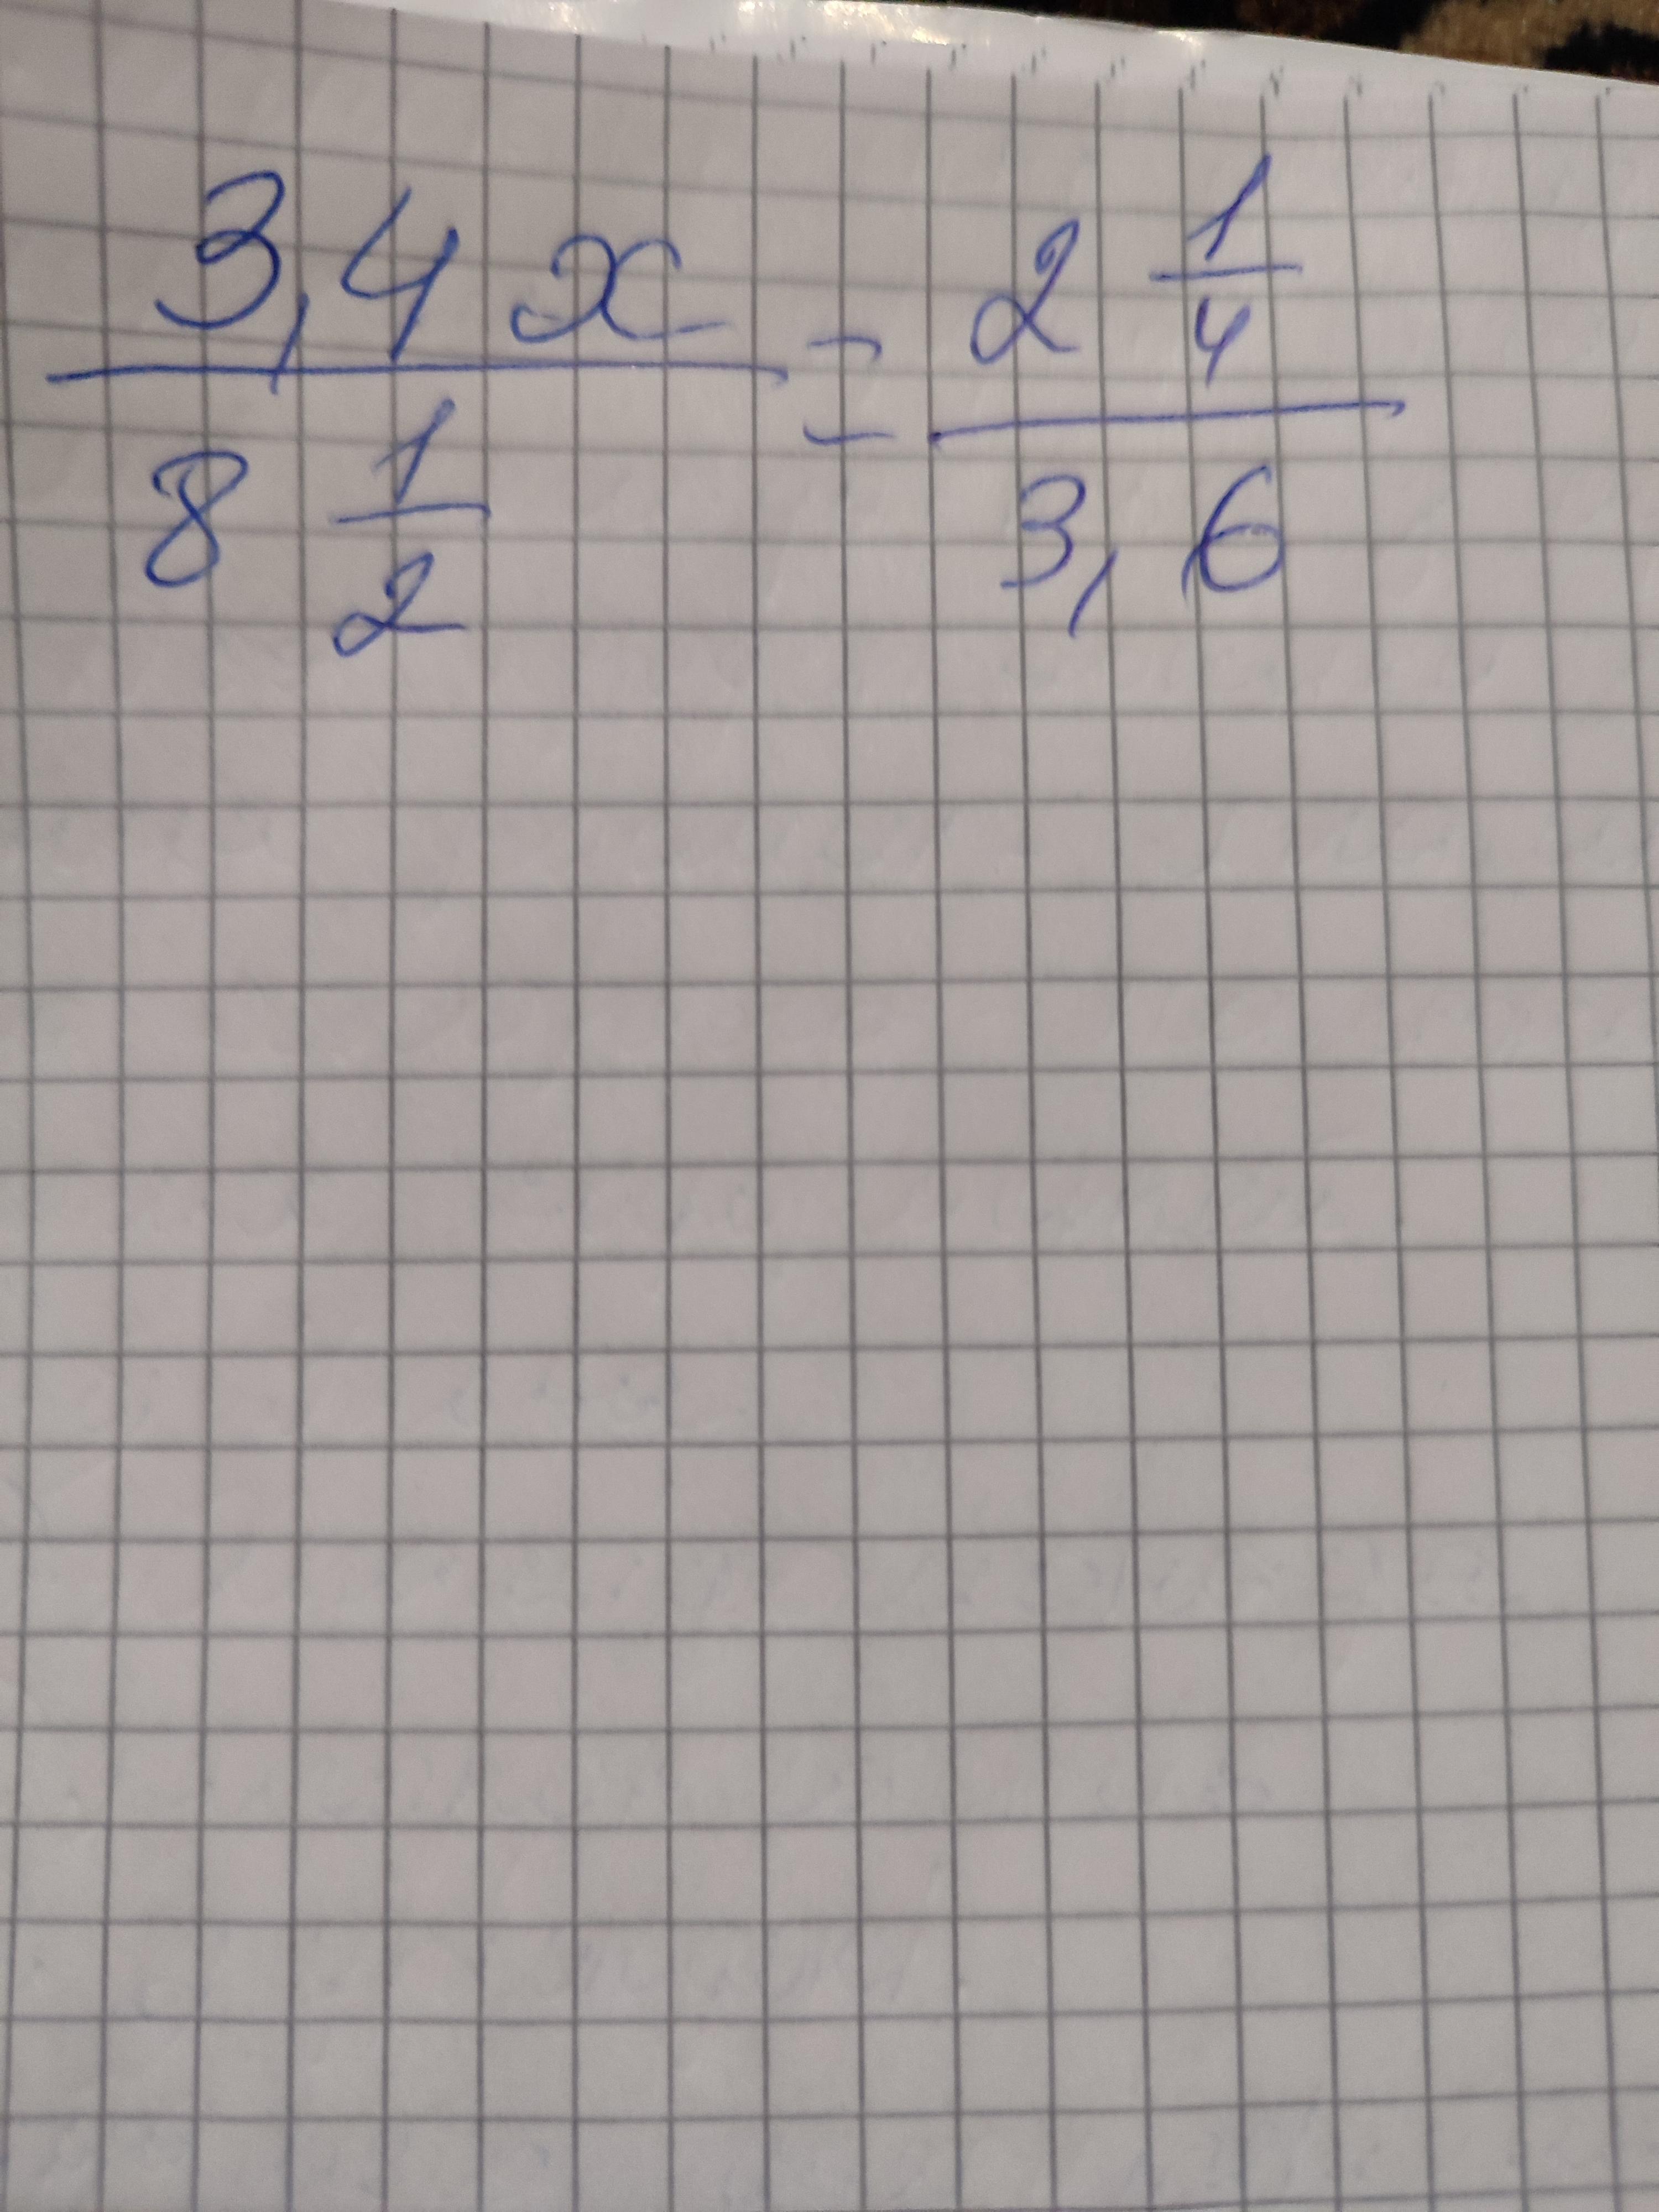 3,4x / 8 1/2 = 2 1/4 / 3,6